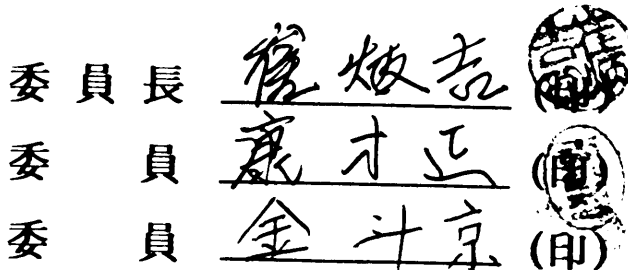 委員長 崔 炳吉 (印)
委員 康才正 (印)
委員 金斗京 (印)